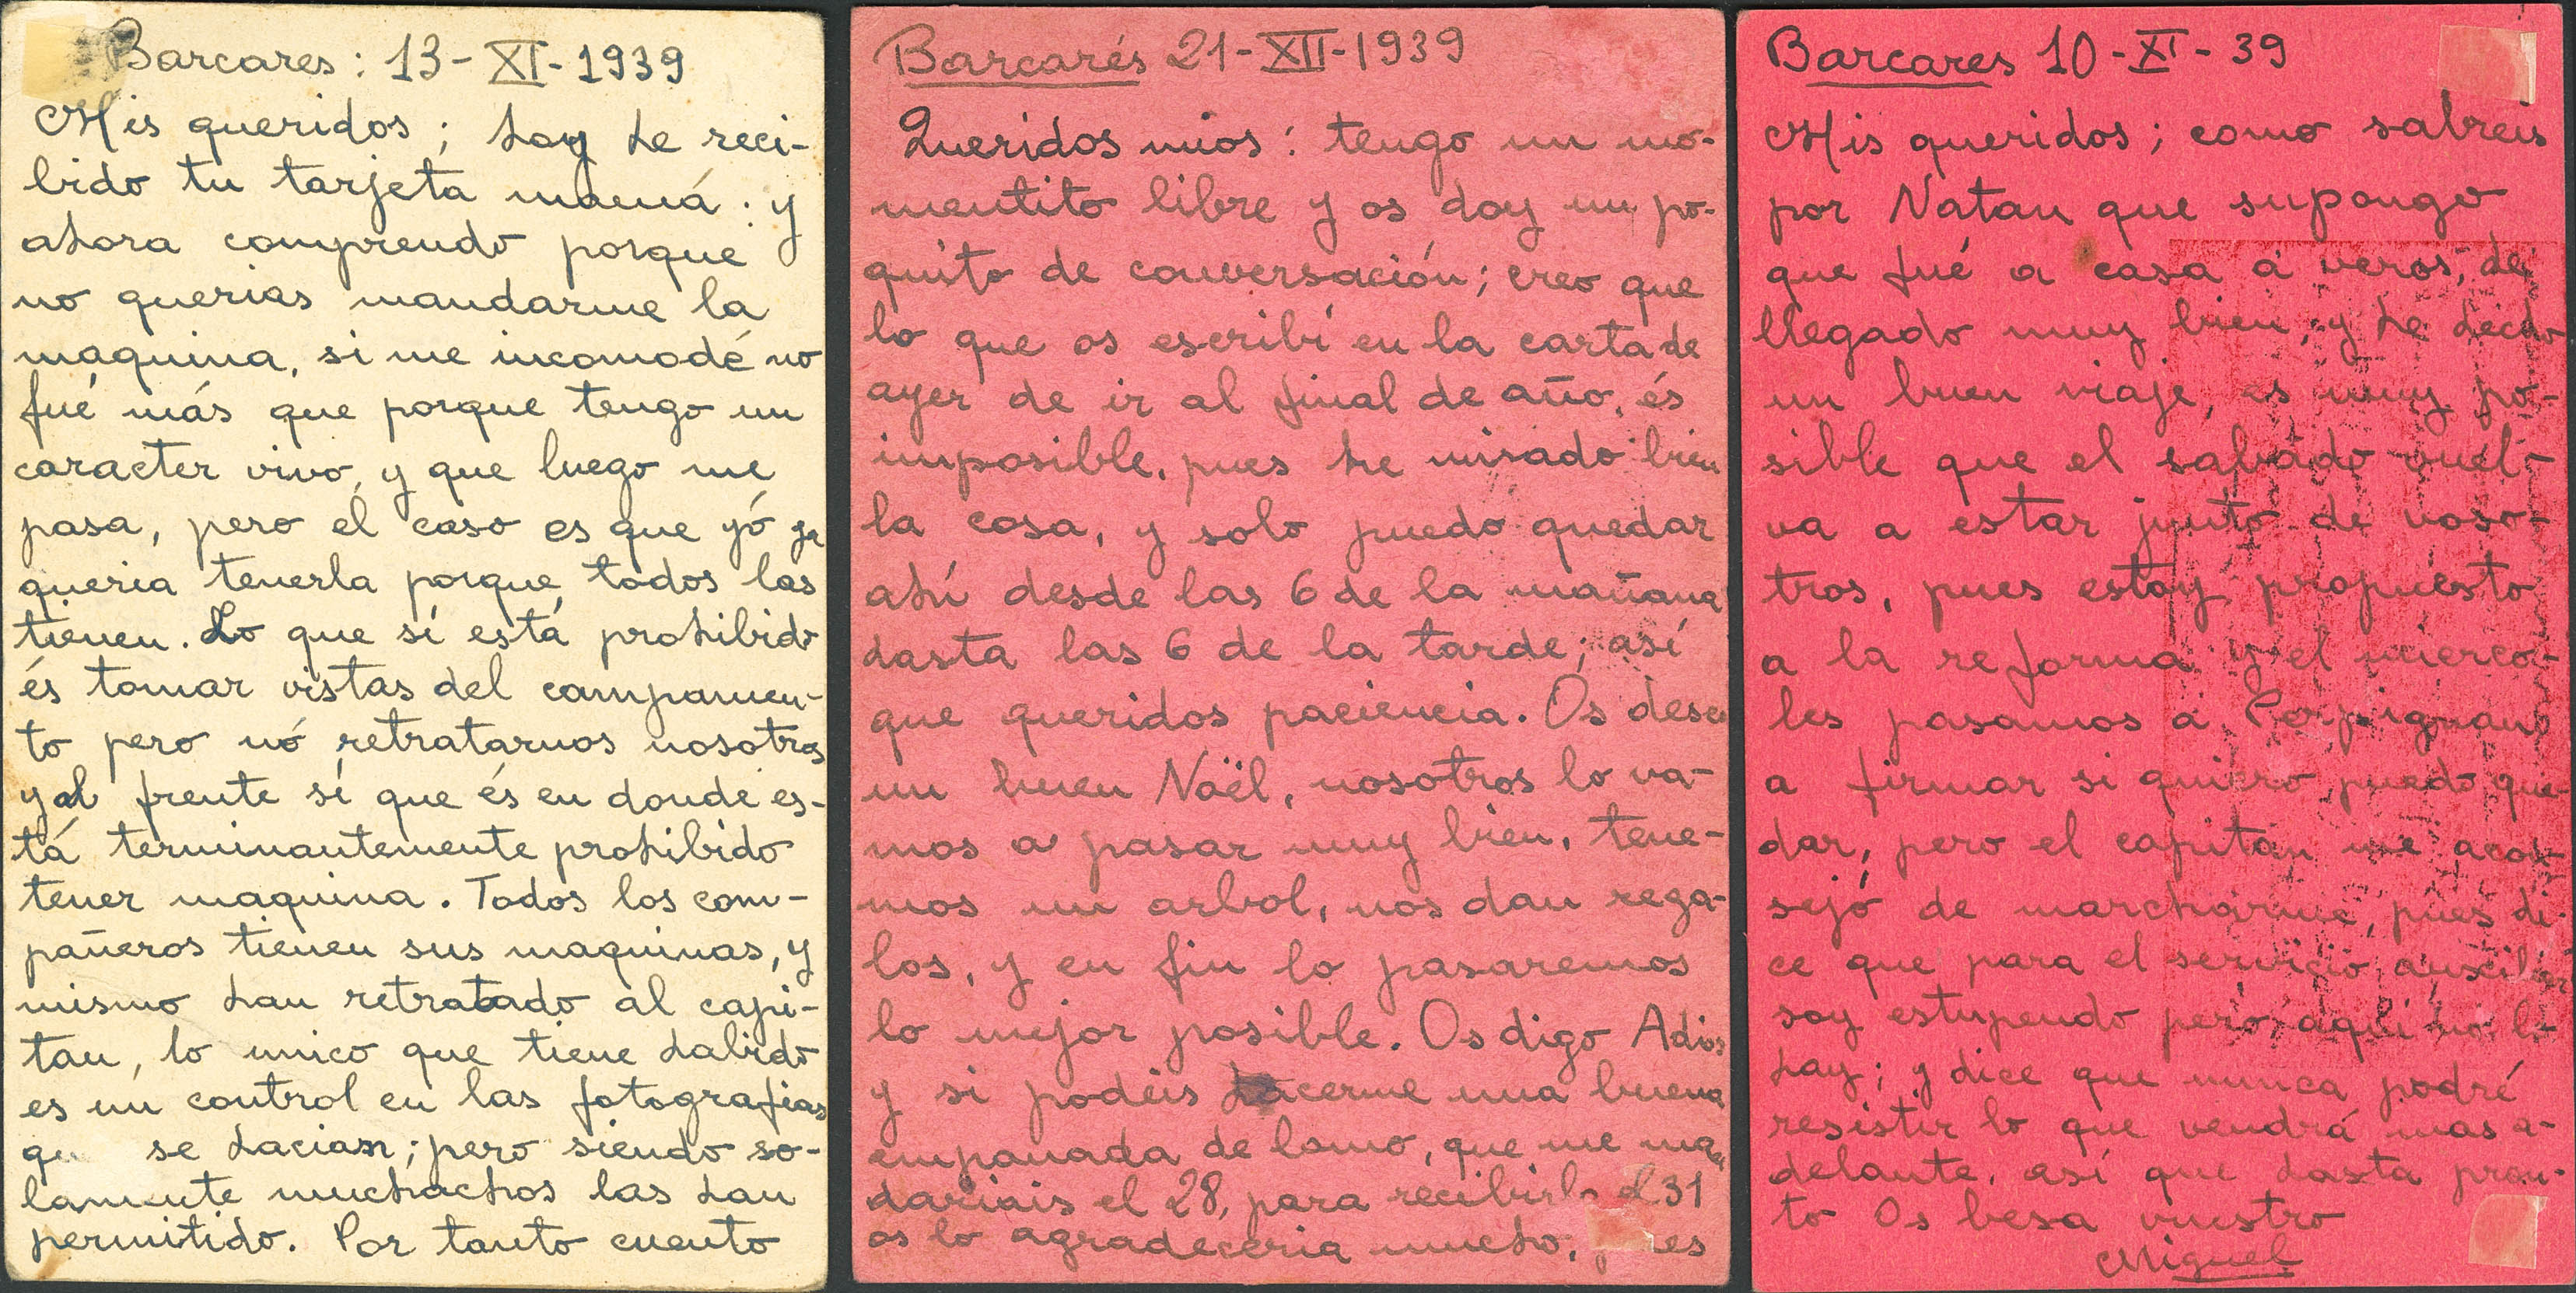 Barcares : 13-XI-1939
Mis queridos ; hoy he reci-
bido tu tarjeta mamá : y
ahora comprendo porque
no querias mandarme la
maquina, si me incomodé no
fué más que porque tengo un
caracter vivo, y que luego me
pasa, pero el caso es que yó ya
queria tenerla porque todos las
tienen. Lo que sí está prohibido
és tomar vistas del campamen-
to pero nó retratarnos nosotros
y al frente sí que és en donde es-
tá terminantemente prohibido
tener maquina. Todos los com-
pañeros tienen sus maquinas, y
mismo han retratado al capi-
tan, lo unico que tiene habido
es un control en las fotografias
qu se hacian ; pero siendo so-
lamente muchachos las han
permitido. Por tanto cuento
Barcarés 21-XII-1939
Queridos mios : tengo un mo-
mentito libre y os doy un po-
quito de conversación ; creo que
lo que os escribí en la carta de
ayer de ir al final de año, és
imposible, pues he mirado bien
la cosa, y solo puedo quedar
ahí desde las 6 de la mañana
hasta las 6 de la tarde ; así
que queridos paciencia. Os deseo
un buen Noël, nosotros lo va-
mos a pasar muy bien, tene-
mos un arbol, nos dan rega-
los, y en fin lo pasaremos
lo mejor posible. Os digo Adios
y si podéis hacerme una buena
empanada de lomo, que me man
dariais el 28, para recibirla el 31
os lo agradeceria mucho, es
Barcares 10-XI-39
Mis queridos ; como sabreis
por Natan que supongo
que fué a casa á veros, he
llegado muy bien, y he hecho
un buen viaje, es muy po-
sible que el sabado vuel-
va a estar junto de voso-
tros, pues estoy propuesto
a la reforma y el mierco-
les pasamos a Perpignan
a firmar si quiero puedo que-
dar, pero el capitán me acon-
sejó de marcharme, pues di-
ce que para el servicio auxiliar
soy estupendo pero aquí no lo
hay ; y dice que nunca podré
resistir lo que vendrá mas a-
delante, así que hasta pron-
to Os besa vuestro
Miguel